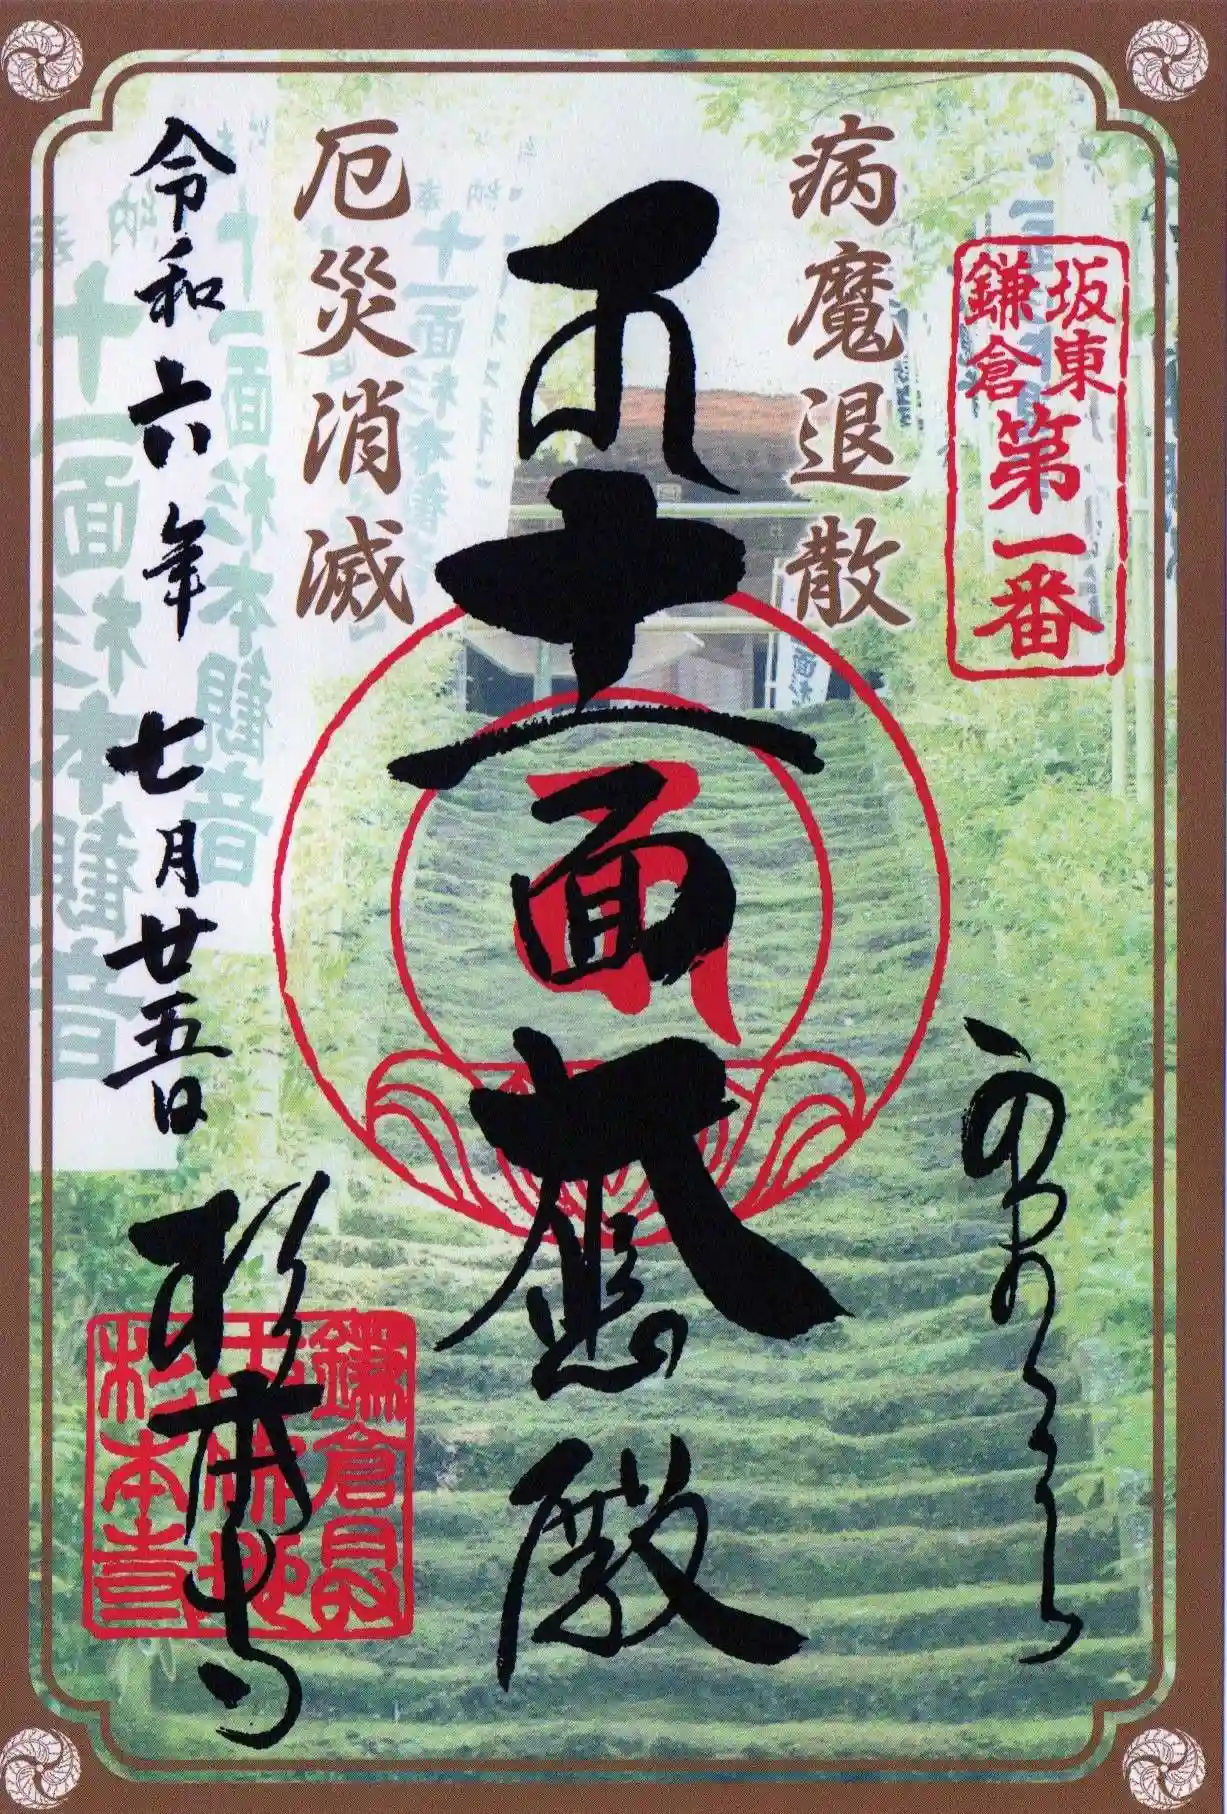 坂東
鎌倉
第一番
奉拝
病魔退散
十一面大悲殿
厄災消滅
令和六年七月廿五日
杉本寺
十一面杉本観音
十一面杉本観音